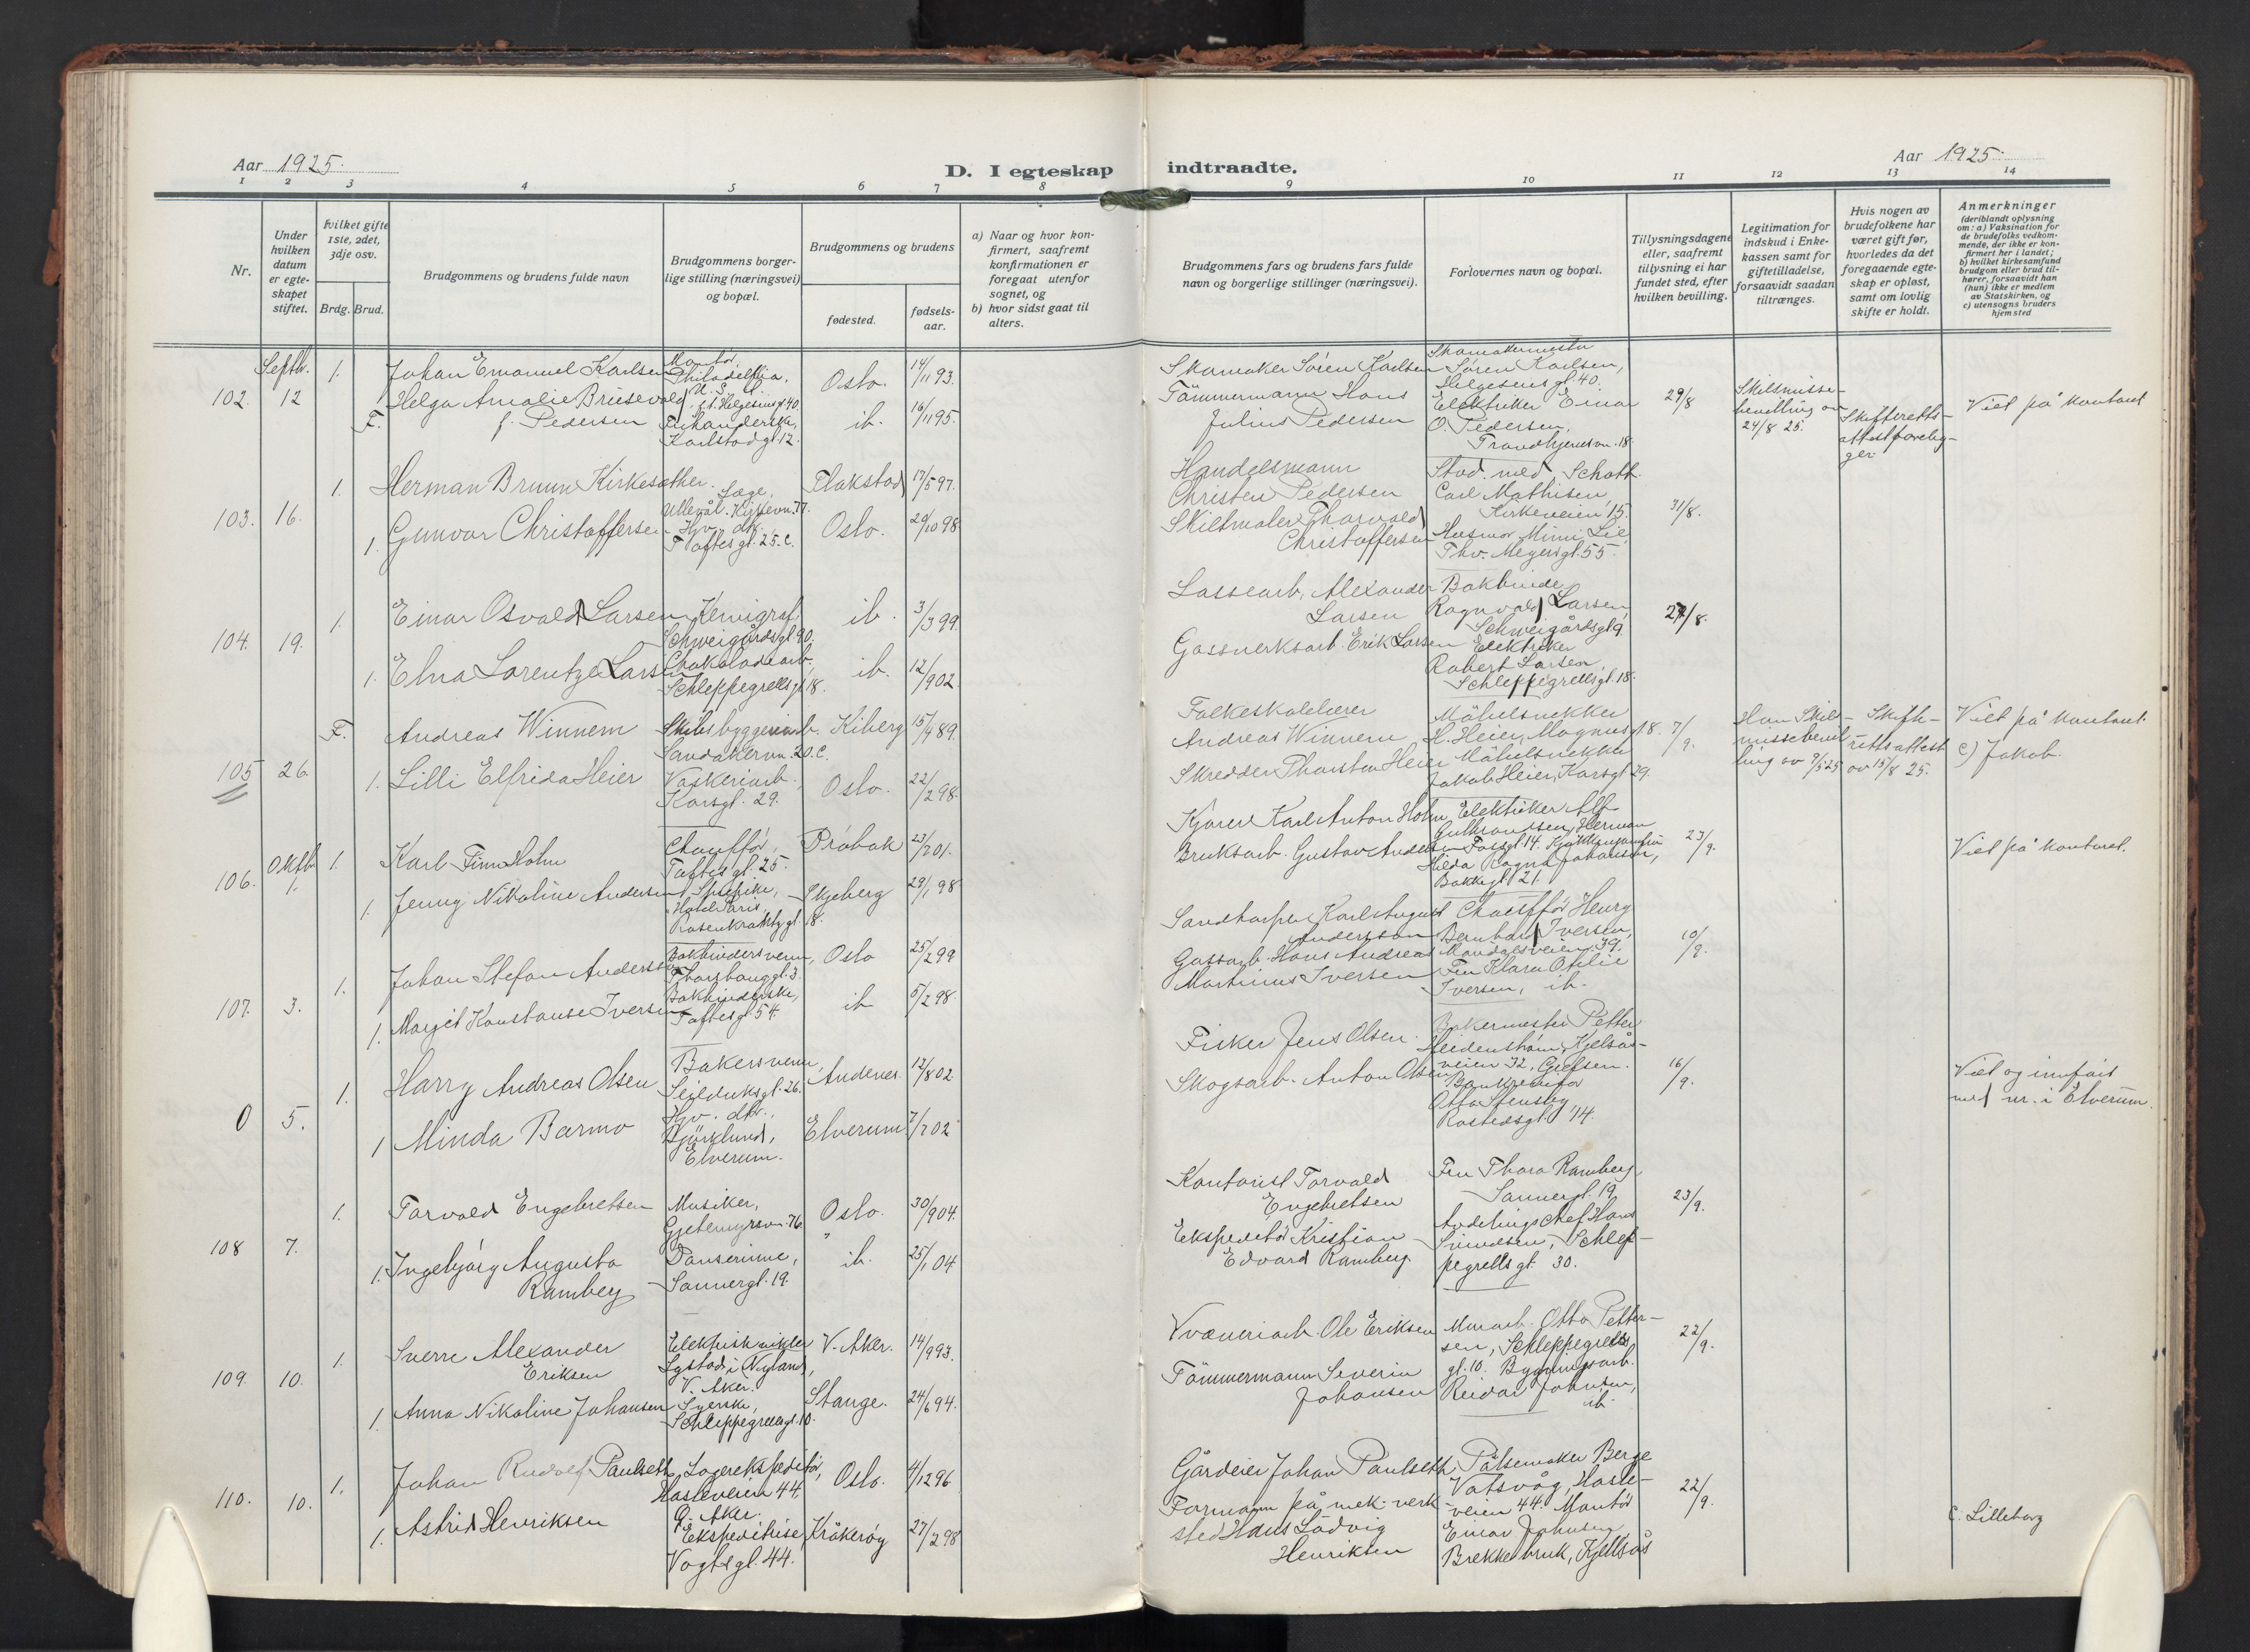 Aar 1925.
D. I egteskap indtraadte.
Aar 1925.
1 2 3 4 5 6 7 8 9 10 11 12 13 14
Nr.
Under hvilken datum er egteskapet stiftet.
Hvilket gifte 1ste, 2det, 3dje osv.
Brdg. Brud.
Brudgommens og brudens fulde navn
Brudgommens borgerlige stilling (næringsvei) og bopæl.
Brudgommens og brudens
fødested.
fødselsaar.
a) Naar og hvor konfirmert, saafremt konfirmationen er foregaat utenfor sognet, og
b) hvor sidst gaat til alters.
Brudgommens fars og brudens fars fulde navn og borgerlige stillinger (næringsvei).
Forlovernes navn og bopæl.
Tillysningsdagene eller, saafremt tillysning ei har fundet sted, efter hvilken bevilling.
Legitimation for indskud i Enkekassen samt for giftetilladelse, forsaavidt saadan tiltrænges.
Hvis nogen av brudefolkene har været gift før, hvorledes da det foregaaende egteskap er opløst, samt om lovlig skifte er holdt.
Anmerkninger
(deriblandt oplysning om: a) Vaksination for de brudefolks vedkommende, der ikke er konfirmert her i landet; b) hvilket kirkesamfund brudgom eller brud tilhører, forsaavidt han (hun) ikke er medlem av Statskirken, og c) utensogns bruders hjemsted
102. Septb. 12
1. Johan Emanuel Karlsen
Montør, Philadelfia, U.S.A. f.t. Helgesensgt 40
Oslo. 14/11 93.
F. Helga Amalie Brusevold f. Pedersen
Karlstadgt. 12.
ib. 16/11 95.
Skomaker Søren Karlsen
Tømmermann Hans Julius Pedersen
Skomakermester Søren Karlsen, Helgesensgt. 40.
Elektriker Einar O. Pedersen, Trondhjemsvn. 18.
29/8
Skilsmissebevilling av 24/8 25.
Skifterettsattest foreligger
Viet på kontoret
103. 16.
1. Herman Bruun Kirkesæther.
Læge, Ullevål. Kirkevn. 77.
Flakstad 17/5 97.
1. Gunvor Christoffersen
Hjv. dtr. Toftesgt. 25.c.
Oslo. 29/10 98.
Handelsmann Christen Pedersen
Skiltmaler Thorvald Christoffersen
Stud. med. Schøtt
Carl Mathisen, Kirkeveien 15.
Husmor Mimi Lie, Thv. Meyersgt. 55.
31/8.
104. 19.
1. Einar Osvald Larsen
Kemigraf, Schweigårdsgt. 90.
ib. 3/3 99.
1. Elna Lorentze Larsen
Chokoladearb. Schleppegrellsgt. 18.
ib. 12/9 02.
Lossearb. Alexander Larsen
Gassverksarb. Erik Larsen
Bokbinder Ragnvald Larsen, Schweigårdsgt 9.
Elektriker Robert Larsen, Schleppegrellsgt. 18.
27/8.
105 26.
F. Andreas Winnem
Skibsbyggeriarb. Sandakervn. 20.c.
Kiberg 15/4 89.
1. Lilli Elfrida Heier
Vaskeriarb. Korsgt. 29.
Oslo. 22/2 98.
Folkeskolelærer Andreas Winnem
Skredder Thorsten Heier
Møbelsnekker H. Heier, Magnusgt 8.
Møbelsnekker Jakob Heier, Korsgt 29.
7/9.
Han Skilsmissebevilling av 9/5 25
Skifterettsattest av 15/8 25.
Viet på kontoret.
c) Jakob.
106. Oktb. 1.
1. Karl Finn Holm
Chauffør, Toftesgt. 25.
Drøbak 23/7 01.
1. Jenny Nikoline Andersen
Hotel Paris, Rosenkrantzgt 18.
Skjeberg 29/1 98
Kjører Karl Anton Holm
Bruksarb. Gustav Andersen
Elektriker Alf Gulbrandsen, Herman Fossgt. 14.
Hilda Ragna Johansen, Bakkegt. 21.
23/9.
Viet på kontoret.
107. 3.
1. Johan Stefan Andersson
Bokbindersvenn, Thorshauggt. 3.
Oslo 25/2 99
1. Margit Konstanse Iversen
Bokbinderske, Toftesgt. 54.
ib 5/2 98.
Karl August Andersson
Gassarb. Hans Andreas Martinius Iversen
Chauffør Henry Bernhard Iversen, Maridalsveien 39.
Fru Klara Otilie Iversen, ib.
10/9.
0 5.
1. Harry Andreas Olsen
Bakersvenn, Seilduksgt. 26.
Andenes. 12/8 02
1 Minda Barmo
Hjv. dtr. Bjørklund, Elverum.
Elverum 7/7 02
Fisker Jens Olsen.
Skogsarb. Anton Olsen
Bakermester Petter Heidenstrøm, Kjelsåsveien 32, Grefsen.
Otto Stensby, Rostedsgt. 14.
16/9.
Viet og innført med nr. i Elverum.
108 7.
1. Torvald Engebretsen
Musiker, Gjetemyrsvn. 76.
Oslo. 30/9 04.
1. Ingebjørg Augusta Ramberg
Danserinne, Sannergt. 19.
ib. 25/1 04
Kontorist Torvald Engebretsen
Ekspeditør Kristian Edvard Ramberg.
Fru Thora Ramberg Sannergt. 19.
Avdelingschef Hans Simensen, Schleppegrellsgt. 30.
23/9.
109. 10.
1. Sverre Alexander Eriksen
Elektriskvikler Lystad i Nyland, V. Aker.
V. Aker. 14/9 93.
1. Anna Nikoline Johansen
Syerske, Schleppegrellsgt. 10.
Stange. 24/6 94.
Veveriarb. Ole Eriksen
Tømmermann Severin Johansen
Murarb. Otto Pettersen, Schleppegrellsgt. 10.
Bygningsarb. Reidar Johnsen, ib.
22/9.
110. 10.
1. Johan Rudolf Paulseth
Lagerekspeditør, Hasleveien 44. Ø. Aker.
Oslo. 4/12 96
1. Astrid Henriksen
Ekspeditrise, Vogtsgt. 44.
Kråkerøy 27/2 98
Gårdeier Johan Paulseth
Formann på mek. verksted Hans Ludvig Henriksen
Pølsemaker Berge Vatsvåg, Hasleveien 44.
Montør Einar Johnsen, Brekke bruk, Kjelsås
22/9.
c. Lilleborg